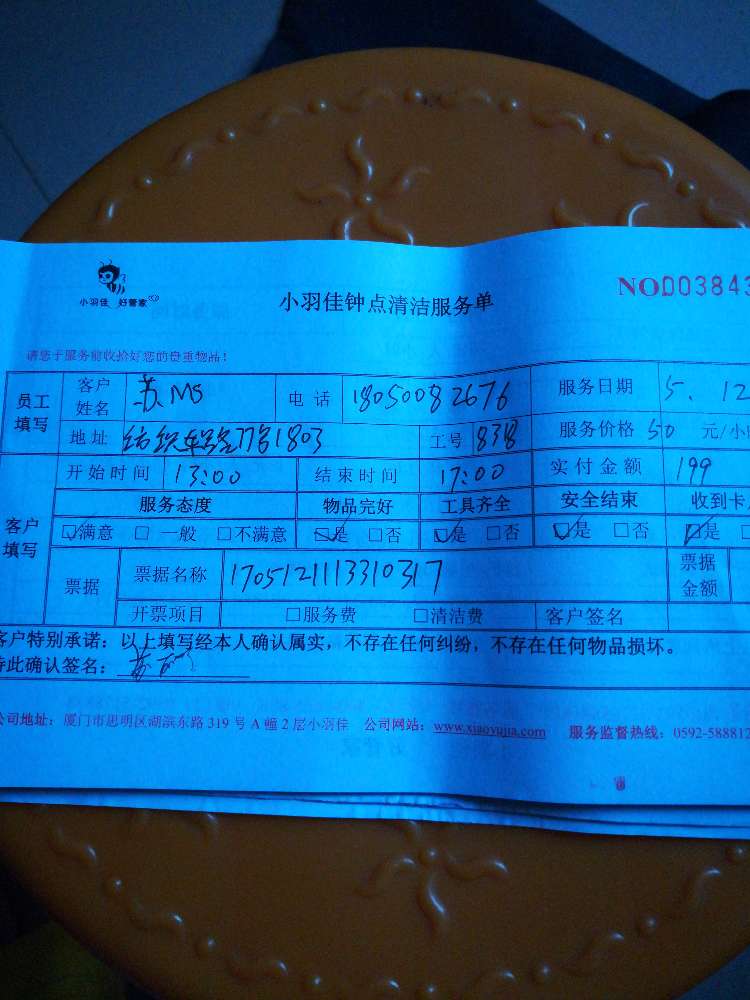 小羽佳 好管家
小羽佳钟点清洁服务单
NO003843
请您于服务前收拾好您的贵重物品！
员工填写 客户姓名 苏MS 电话 18050082676 服务日期 5. 12
地址 1803 工号 838 服务价格 50 元/小
客户填写 开始时间 13:00 结束时间 17:00 实付金额 199
服务态度 物品完好 工具齐全 安全结束 收到卡
☑满意 □一般 □不满意 ☑是 □否 ☑是 □否 ☑是 □否 ☑是
票据 票据名称 1705121113310317 票据金额
开票项目 □服务费 □清洁费 客户签名
客户特别承诺：以上填写经本人确认属实，不存在任何纠纷，不存在任何物品损坏。
特此确认签名：
公司地址：厦门市思明区湖滨东路 319 号 A 幢 2 层小羽佳 公司网站：www.xiaoyujia.com 服务监督热线：0592-588812